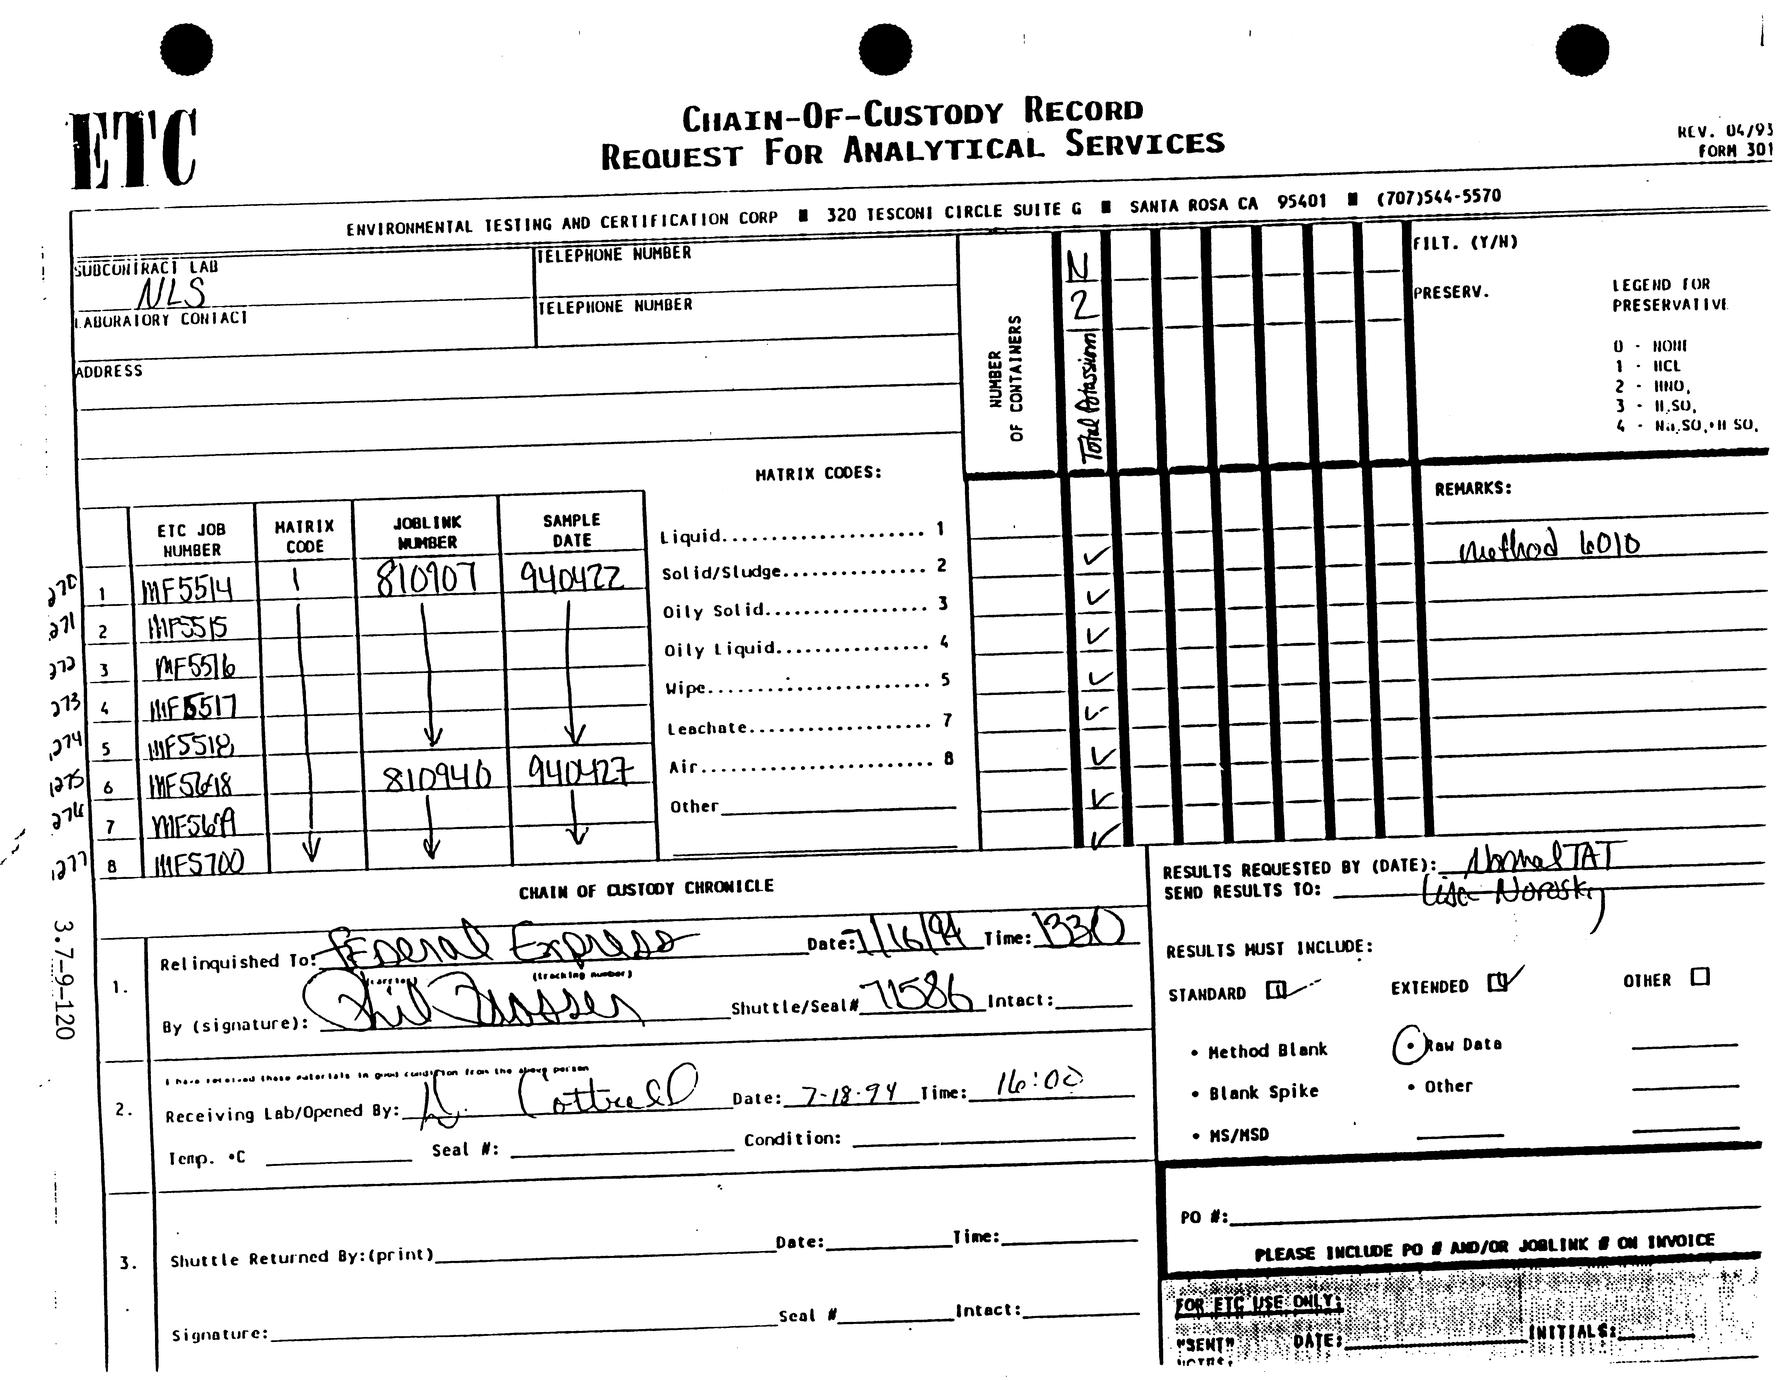 ETC
CHAIN-OF-CUSTODY RECORD
REQUEST FOR ANALYTICAL SERVICES
REV. 04/93
FORM 301
ENVIRONMENTAL TESTING AND CERTIFICATION CORP ■ 320 TESCONI CIRCLE SUITE G ■ SANTA ROSA CA 95401 ■ (707)544-5570
SUBCONTRACT LAB
NLS
TELEPHONE NUMBER
LABORATORY CONTACT
TELEPHONE NUMBER
ADDRESS
NUMBER
OF CONTAINERS
N
2
Total Potassium
FILT. (Y/N)
PRESERV.
LEGEND FOR
PRESERVATIVE
0 - NONE
1 - HCL
2 - HNO,
3 - H,SO,
4 - Na,SO,+H SO,
MATRIX CODES:
Liquid 1
Solid/Sludge 2
Oily Solid 3
Oily Liquid 4
Wipe 5
Leachate 7
Air 8
Other
REMARKS:
method 6010
ETC JOB NUMBER MATRIX CODE JOBLINK NUMBER SAMPLE DATE
270 1 MF5514 1 810907 940422
271 2 MF5515
272 3 MF5516
273 4 MF5517
274 5 MF5518
275 6 810940 940427
276 7
277 8 MF5700
CHAIN OF CUSTODY CHRONICLE
1.
Relinquished To: Federal Express Date: 7/16/94 Time: 1330
(carrier) (tracking number)
By (signature): Phil Shuttle/Seal# 71586 Intact:
2.
I have received these materials in good condition from the above person
Receiving Lab/Opened By: Cottrell Date: 7-18-94 Time: 16:00
Temp. °C Seal #: Condition:
3.
Shuttle Returned By:(print) Date: Time:
Signature: Seal # Intact:
RESULTS REQUESTED BY (DATE): Normal TAT
SEND RESULTS TO: Lisa
RESULTS MUST INCLUDE:
STANDARD EXTENDED OTHER
• Method Blank • Raw Data
• Blank Spike • Other
• MS/MSD
PO #:
PLEASE INCLUDE PO # AND/OR JOBLINK # ON INVOICE
FOR ETC USE ONLY:
"SENT" DATE: INITIALS:
NOTES:
3.7-9-120